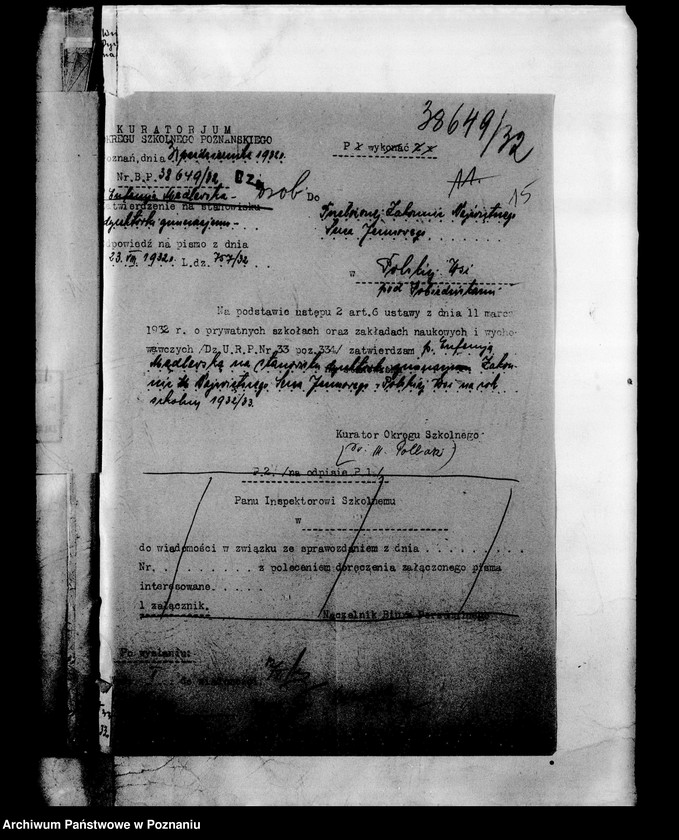 38649/32
KURATORJUM
OKRĘGU SZKOLNEGO POZNAŃSKIEGO
Poznań, dnia października 1932r.
P x wykonać x x
Nr.B.P. 38649/32
osob
15
Eufemja Mądlewska
zatwierdzenie na stanowisku
dyrektorki gimnazjum
Do
Przełożonej Zakonnic Najświętszego
Serca Jezusowego
odpowiedź na pismo z dnia
23.VIII.1932r. L.dz. 757/32
w Polskiej Wsi
pod Pobiedziskami
Na podstawie ustępu 2 art.6 ustawy z dnia 11 marca
1932 r. o prywatnych szkołach oraz zakładach naukowych i wycho-
wawczych /Dz.U.R.P.Nr.33 poz.334/ zatwierdzam p. Eufemję
Mądlewską na stanowisku dyrektorki gimnazjum Zakon-
nic Najświętszego Serca Jezusowego w Polskiej Wsi na rok
szkolny 1932/33.
Kurator Okręgu Szkolnego
(Dr. M. Pollak)
P.2. /na odpisie P.1./
Panu Inspektorowi Szkolnemu
w
do wiadomości w związku ze sprawozdaniem z dnia . . . . . . . . . .
Nr. . . . . . . . . . z poleceniem doręczenia załączonego pisma
interesowane. . . . .
1 załącznik.
Naczelnik Biura Personalnego
Po wysłaniu:
do wiadomości
Archiwum Państwowe w Poznaniu